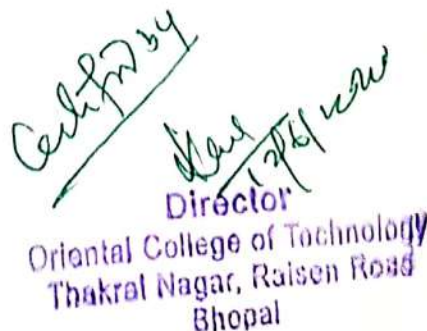 Certified by
Director
Oriental College of Technology
Thakral Nagar, Raisen Road
Bhopal